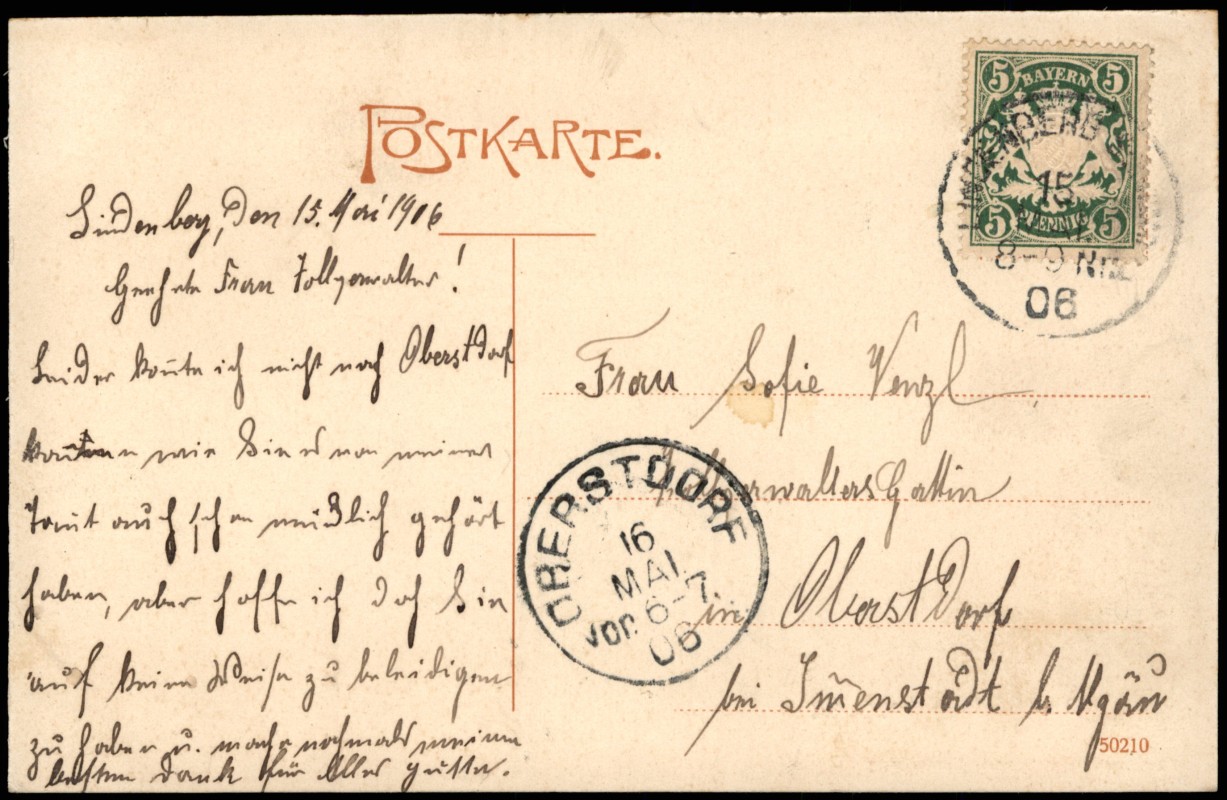 POSTKARTE.
5 BAYERN 5
5 PFENNIG 5
LINDENBERG
15
8-9 Nm.
06
Lindenberg, den 15. Mai 1906
Geehrte Frau Zollverwalter!
Leider konnte ich nicht nach Oberstdorf
kommen wie Sie von meiner
Tant auch schon mündlich gehört
haben, aber hoffe ich doch Sie
auf keine Weise zu beleidigen
zu haben u. mache nochmals meinen
besten Dank für Alles gute.
Frau Sofie Venzl
Zollverwalters Gattin
in Oberstdorf
bei Im̄enstadt b. Algäu
OBERSTDORF
16
MAI
Vor. 6-7.
06
50210